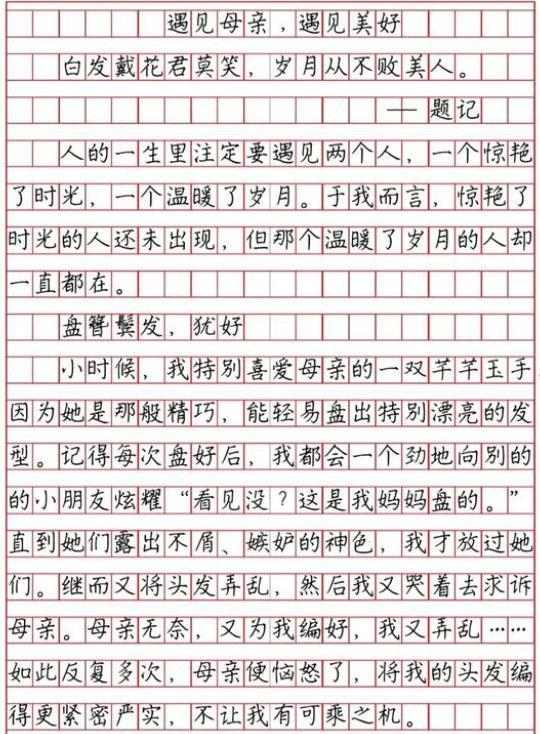 遇见母亲，遇见美好
白发戴花君莫笑，岁月从不败美人。
—题记
人的一生里注定要遇见两个人，一个惊艳
了时光，一个温暖了岁月。于我而言，惊艳了
时光的人还未出现，但那个温暖了岁月的人却
一直都在。
盘簪鬓发，犹好
小时候，我特别喜爱母亲的一双芊芊玉手
因为她是那般精巧，能轻易盘出特别漂亮的发
型。记得每次盘好后，我都会一个劲地向别的
的小朋友炫耀“看见没？这是我妈妈盘的。”
直到她们露出不屑、嫉妒的神色，我才放过她
们。继而又将头发弄乱，然后我又哭着去求诉
母亲。母亲无奈，又为我编好，我又弄乱……
如此反复多次，母亲便恼怒了，将我的头发编
得更紧密严实，不让我有可乘之机。